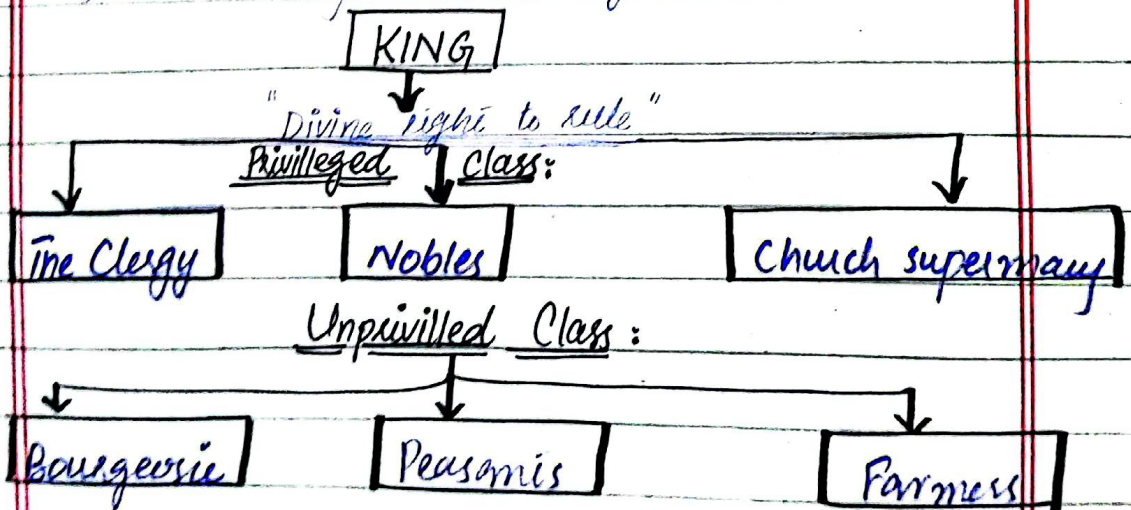 KING
"Divine right to rule"
Privilleged Class:
The Clergy Nobles Church supermacy
Unprivilled Class:
Bourgeosie Peasants Farmers